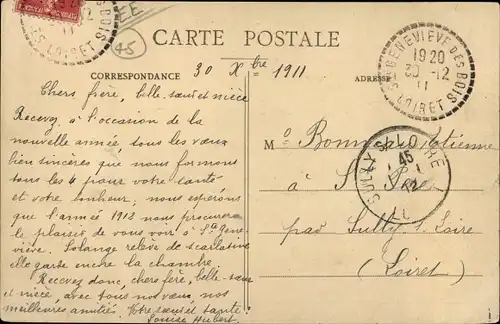 EE
45
CARTE POSTALE
CORRESPONDANCE
ADRESSE
30 Xbre 1911
Chers frère, belle-sœur et nièce
Recevez à l'occasion de la
nouvelle année tous les vœux
bien sincères que nous formons
tous les 4 pour votre santé
et votre bonheur; nous espérons
que l'année 1912 nous procurera
le plaisir de vous voir à Ste Gene-
viève. Solange relève de scarlatine
elle garde encore la chambre.
Recevez donc, chers frère, belle-sœur
et nièce, avec tous nos vœux, nos
meilleures amitiés. Votre sœur et tante
Louise Hubert
Étienne
à St Père
par Sully s. Loire
(Loiret)
STE GENEVIEVE DES BOIS
1920
30 -12
11
LOIRET
SULLY S. LOIRE
45
12
LOIRET